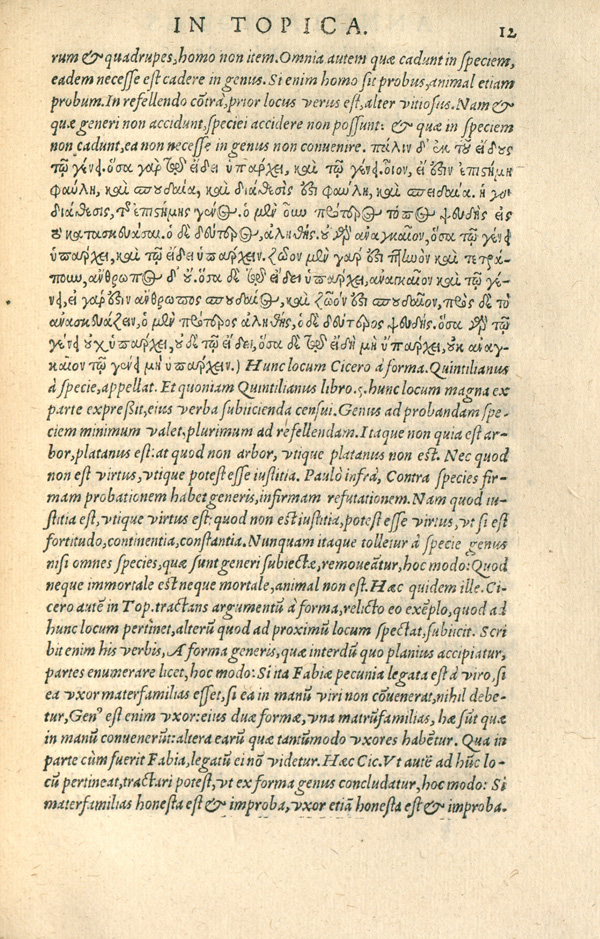 IN TOPICA. 12
rum & quadrupes, homo non item. Omnia autem quæ cadunt in speciem,
eadem necesse est cadere in genus. Si enim homo sit probus, animal etiam
probum. In refellendo cõtrà, prior locus verus est, alter vitiosus. Nam &
quæ generi non accidunt, speciei accidere non possunt: & quæ in speciem
non cadunt, ea non necesse in genus non convenire. πάλιν δ' ἐκ τοῦ εἴδους
τῷ γένει. ὅσα γὰρ τῷ εἴδει ὑπάρχει, καὶ τῷ γένει. οἷον, εἰ ἔστιν ἐπιστήμη
φαύλη, καὶ σπουδαία, καὶ διάθεσις ἔστι φαύλη, καὶ σπουδαία. ἡ γὰρ
διάθεσις, τῆς ἐπιστήμης γένος. ὁ μὲν οὖν πρότερος τόπος ψευδής εἰς
τὸ κατασκευάσαι. ὁ δὲ δεύτερος, ἀληθής. οὐ γὰρ ἀναγκαῖον, ὅσα τῷ γένει
ὑπάρχει, καὶ τῷ εἴδει ὑπάρχειν. ζῶον μὲν γάρ ἐστι πτηνὸν καὶ τετρά-
πουν, ἄνθρωπος δ' οὔ. ὅσα δὲ τῷ εἴδει ὑπάρχει, ἀναγκαῖον καὶ τῷ γέ-
νει, εἰ γάρ ἐστιν ἄνθρωπος σπουδαῖος, καὶ ζῶόν ἐστι σπουδαῖον, πρὸς δὲ τὸ
ἀνασκευάζειν, ὁ μὲν πρότερος ἀληθής, ὁ δὲ δεύτερος ψευδής. ὅσα γὰρ τῷ
γένει οὐχ ὑπάρχει, οὐδὲ τῷ εἴδει, ὅσα δὲ τῷ εἴδει μὴ ὑπάρχει, οὐκ ἀναγ-
καῖον τῷ γένει μὴ ὑπάρχειν.) Hunc locum Cicero à forma. Quintilianus
à specie, appellat. Et quoniam Quintilianus libro .5. hunc locum magna ex
parte expreßit, eius verba subiicienda censui. Genus ad probandam spe-
ciem minimum valet, plurimum ad refellendam. Itaque non quia est ar-
bor, platanus est: at quod non arbor, vtique platanus non est. Nec quod
non est virtus, vtique potest esse iustitia. Paulò infrà, Contra species fir-
mam probationem habet generis, infirmam refutationem. Nam quod iu-
stitia est, vtique virtus est: quod non est iustitia, potest esse virtus, vt si est
fortitudo, continentia, constantia. Nunquam itaque tolletur à specie genus
nisi omnes species, quæ sunt generi subiectæ, remoueãtur, hoc modo: Quod
neque immortale est neque mortale, animal non est. Hæc quidem ille. Ci-
cero autẽ in Top. tractans argumentũ à forma, relicto eo exẽplo, quod ad
hunc locum pertinet, alterũ quod ad proximũ locum spectat, subiicit. Scri
bit enim his verbis, A forma generis, quæ interdũ quo planius accipiatur,
partes enumerare licet, hoc modo: Si ita Fabiæ pecunia legata est à viro, si
ea vxor materfamilias esset, si ea in manũ viri non cõuenerat, nihil debe-
tur, Genꝰ est enim vxor: eius duæ formæ, vna matrũfamilias, hæ sũt quæ
in manũ conuenerũt: altera earũ quæ tantũmodo vxores habẽtur. Qua in
parte cùm fuerit Fabia, legatũ ei nõ videtur. Hæc Cic. Vt autẽ ad hũc lo-
cũ pertineat, tractari potest, vt ex forma genus concludatur, hoc modo: Si
materfamilias honesta est & improba, vxor etiã honesta est & improba.